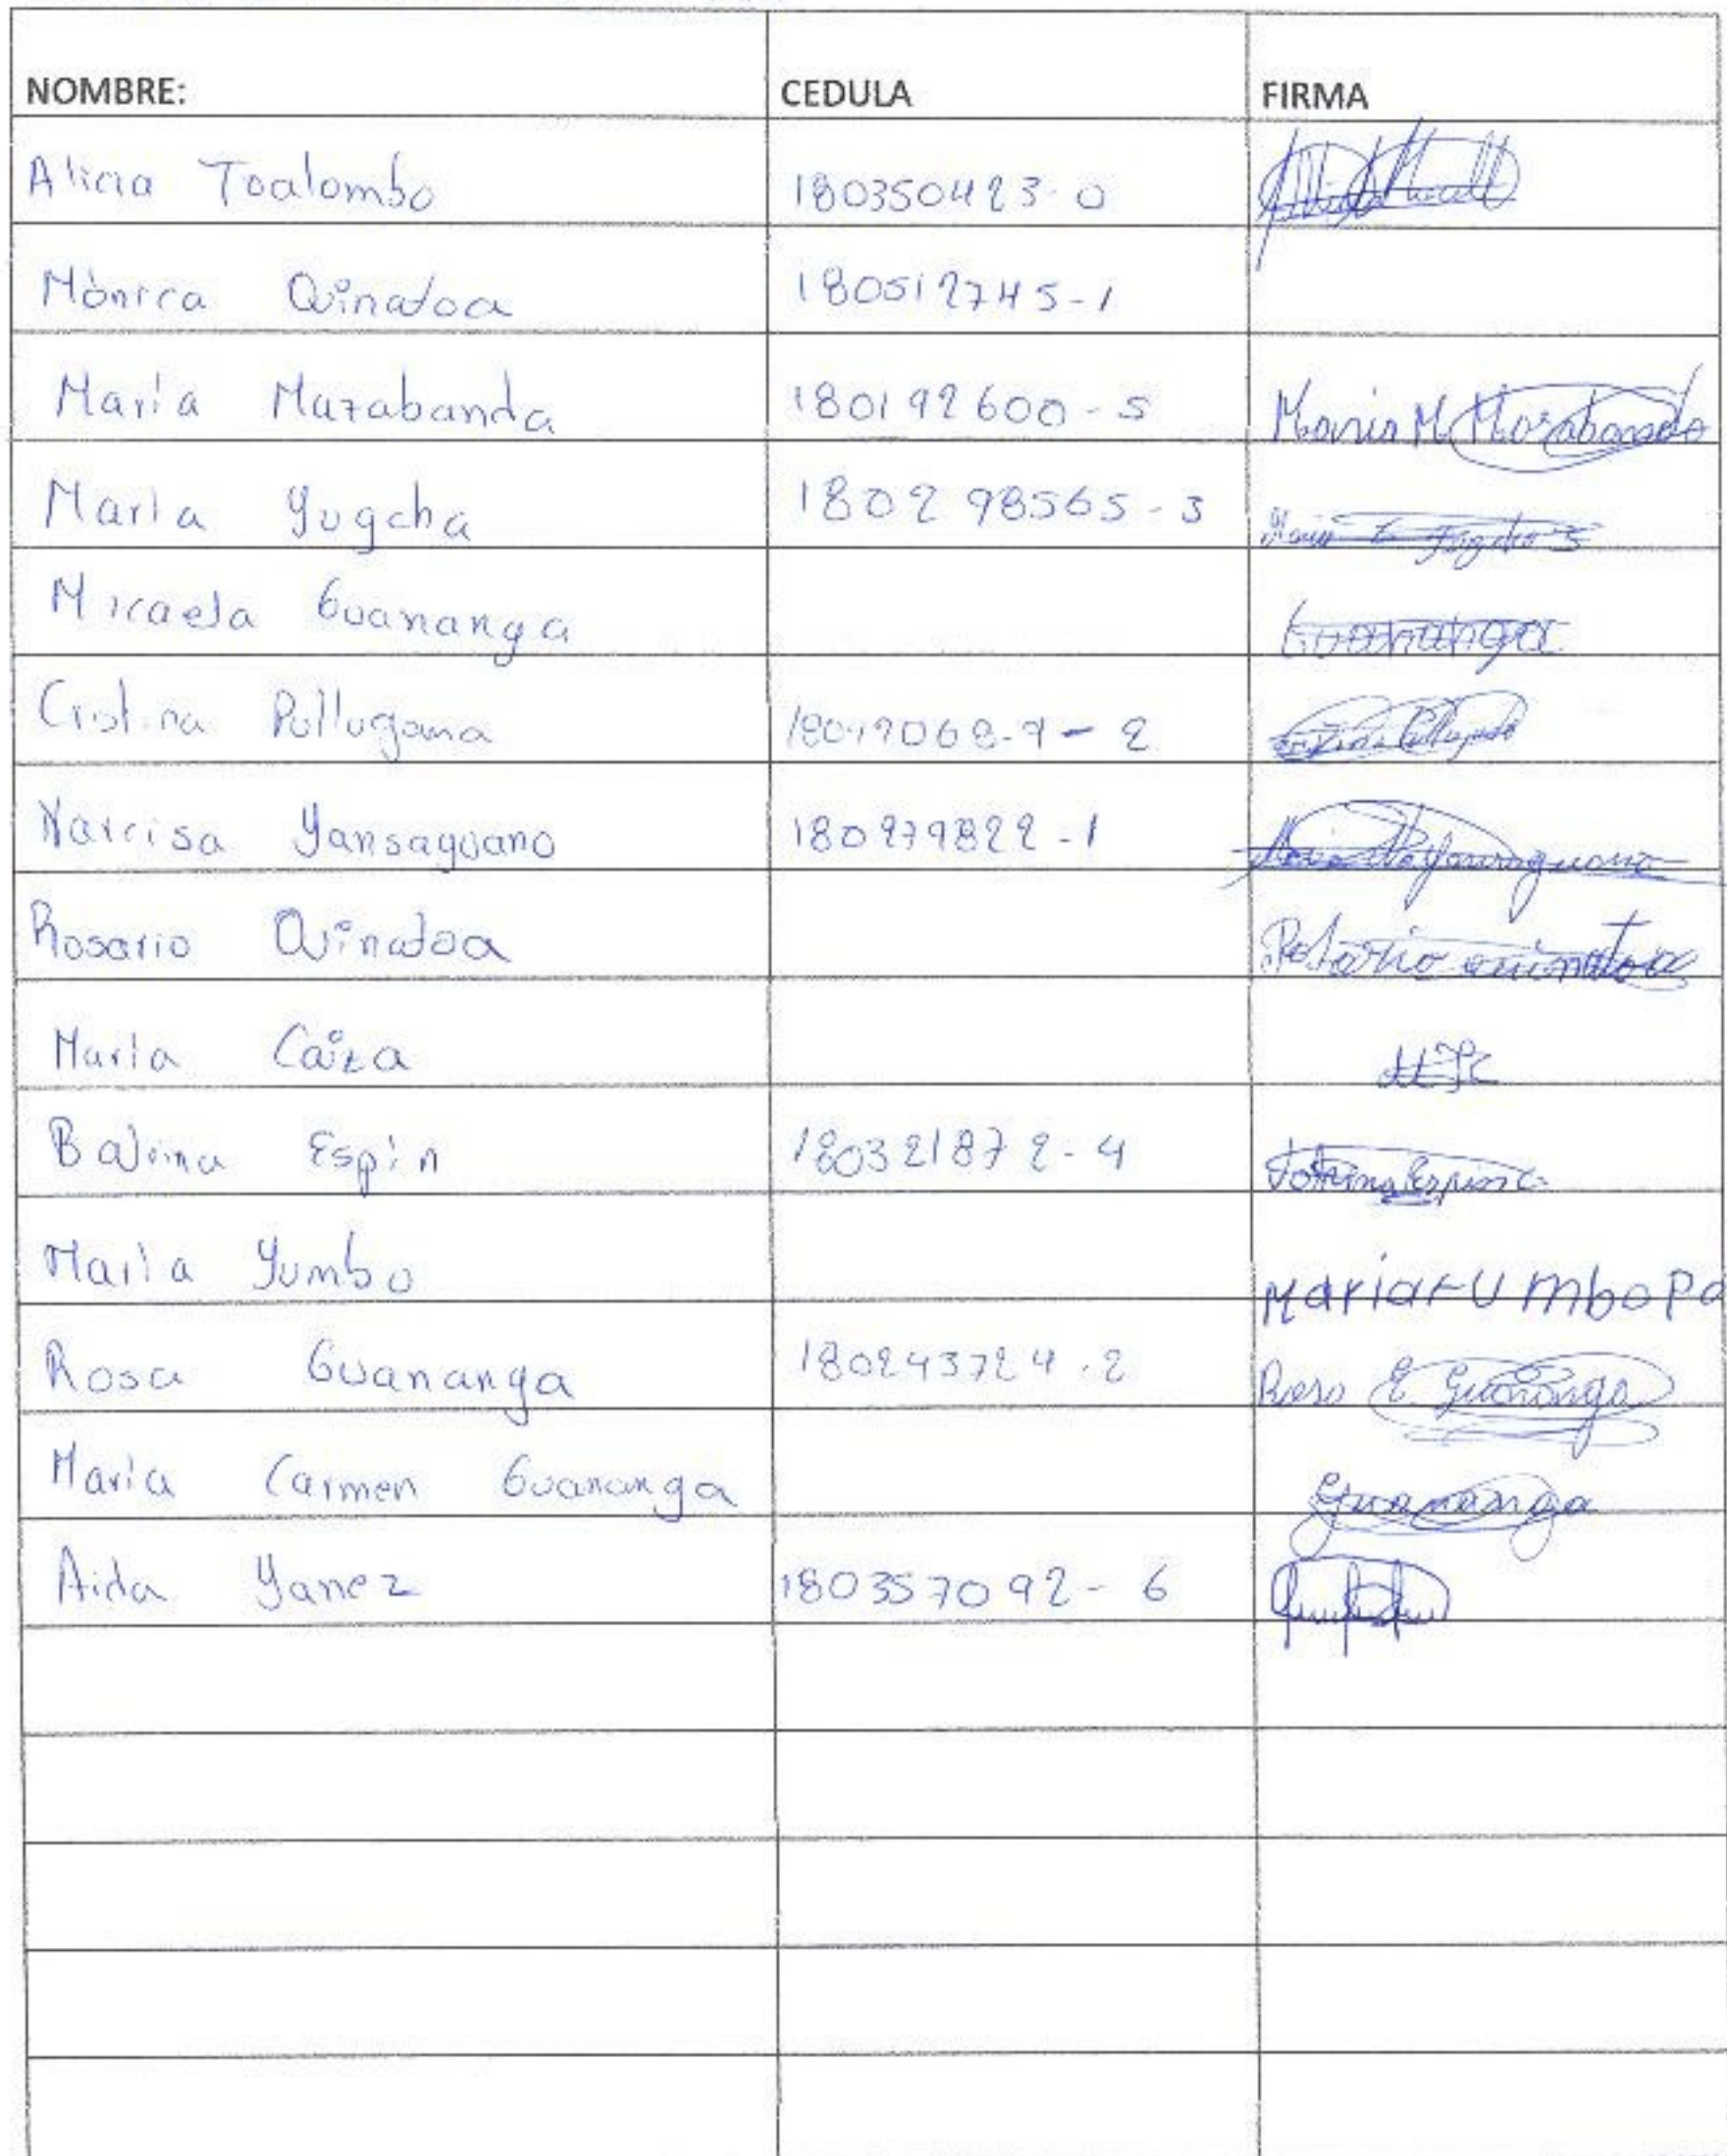 NOMBRE: CEDULA FIRMA
Alicia Toalombo 180350423-0
Mònica Quinatoa 180512745-1
María Mazabanda 180192600-5 Maria M. Mazabanda
María Yugcha 180298565-3 Maria
Micaela Guananga Guananga
Cristina Pullugana
Narcisa Yansaguano 180279822-1
Rosario Quinatoa Rosario Quinatoa
María Caiza
Balvina Espín 180321872-4
María Yumbo Maria Yumbo Pa
Rosa Guananga 180243724-2 Rosa E. Guananga
María Carmen Guananga Guananga
Aida Yanez 180357092-6